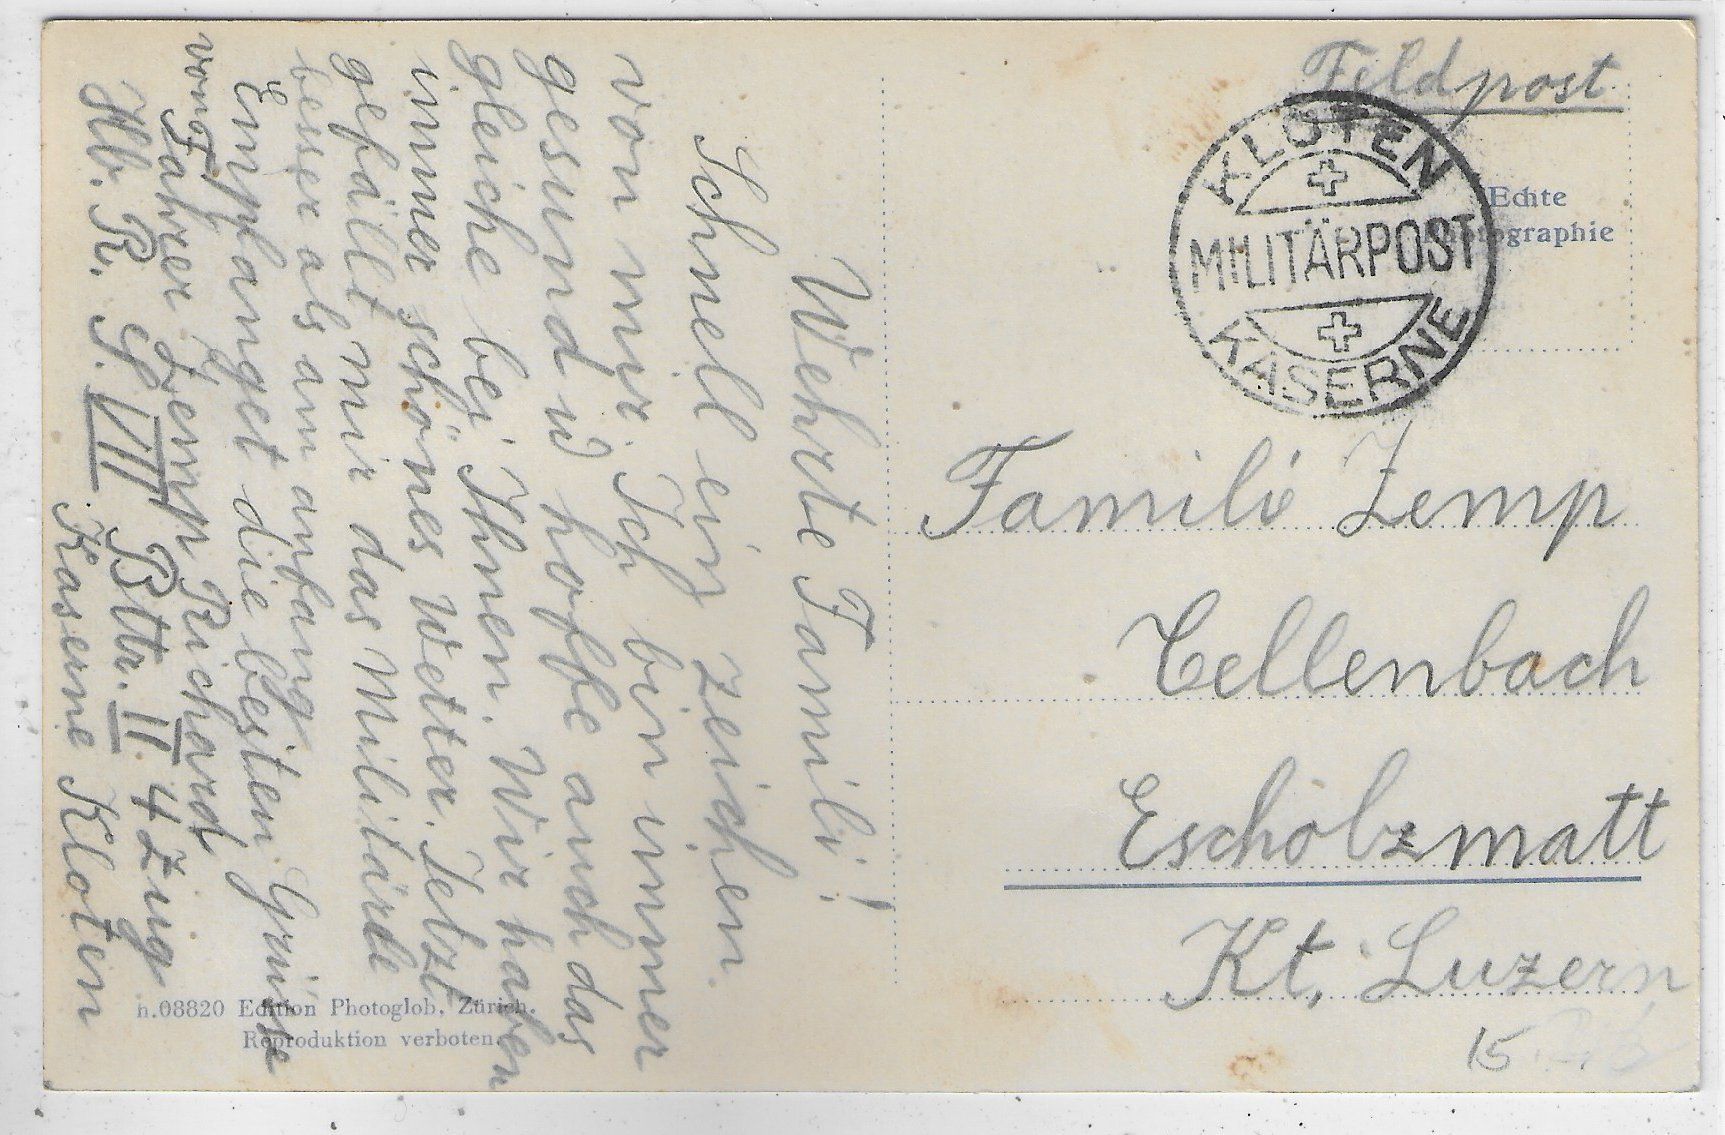 Wehrte Famili!
Schnell ein zeichen
von mir. Ich bin immer
gesund u hoffe auch das
gleiche bei Ihnen. Wir haben
immer schönes Wetter. Jetzt
gefällt mir das Militärde
besser als am anfang
Empfanget die besten Grüsse
von F.
Fahrer Zemp Richard
Hb. R. S. VIII Bttr. II 4 Zug
Kaserne Kloten
Feldpost
KLOTEN
MILITÄRPOST
KASERNE
Echte
Photographie
Famili Zemp
Tellenbach
Escholzmatt
Kt. Luzern
15
n.08820 Edition Photoglob, Zürich.
Reproduktion verboten.